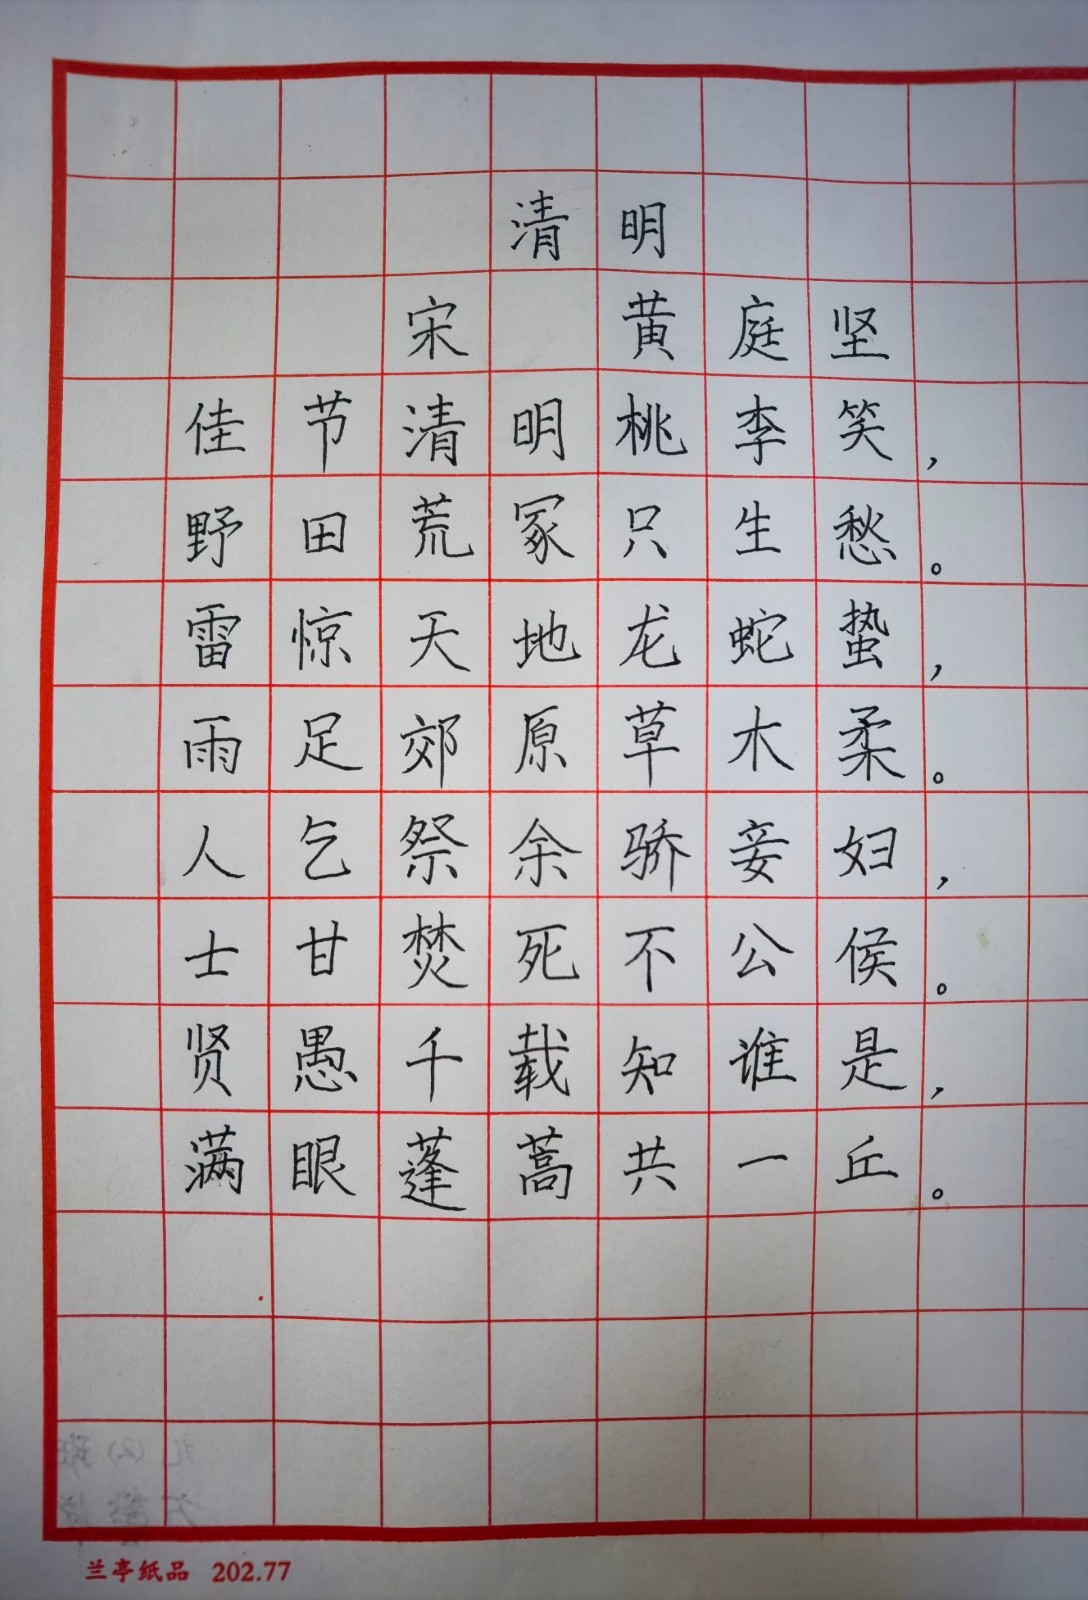 清明
宋 黄庭坚
佳节清明桃李笑，
野田荒冢只生愁。
雷惊天地龙蛇蛰，
雨足郊原草木柔。
人乞祭余骄妾妇，
士甘焚死不公侯。
贤愚千载知谁是，
满眼蓬蒿共一丘。
兰亭纸品 202.77